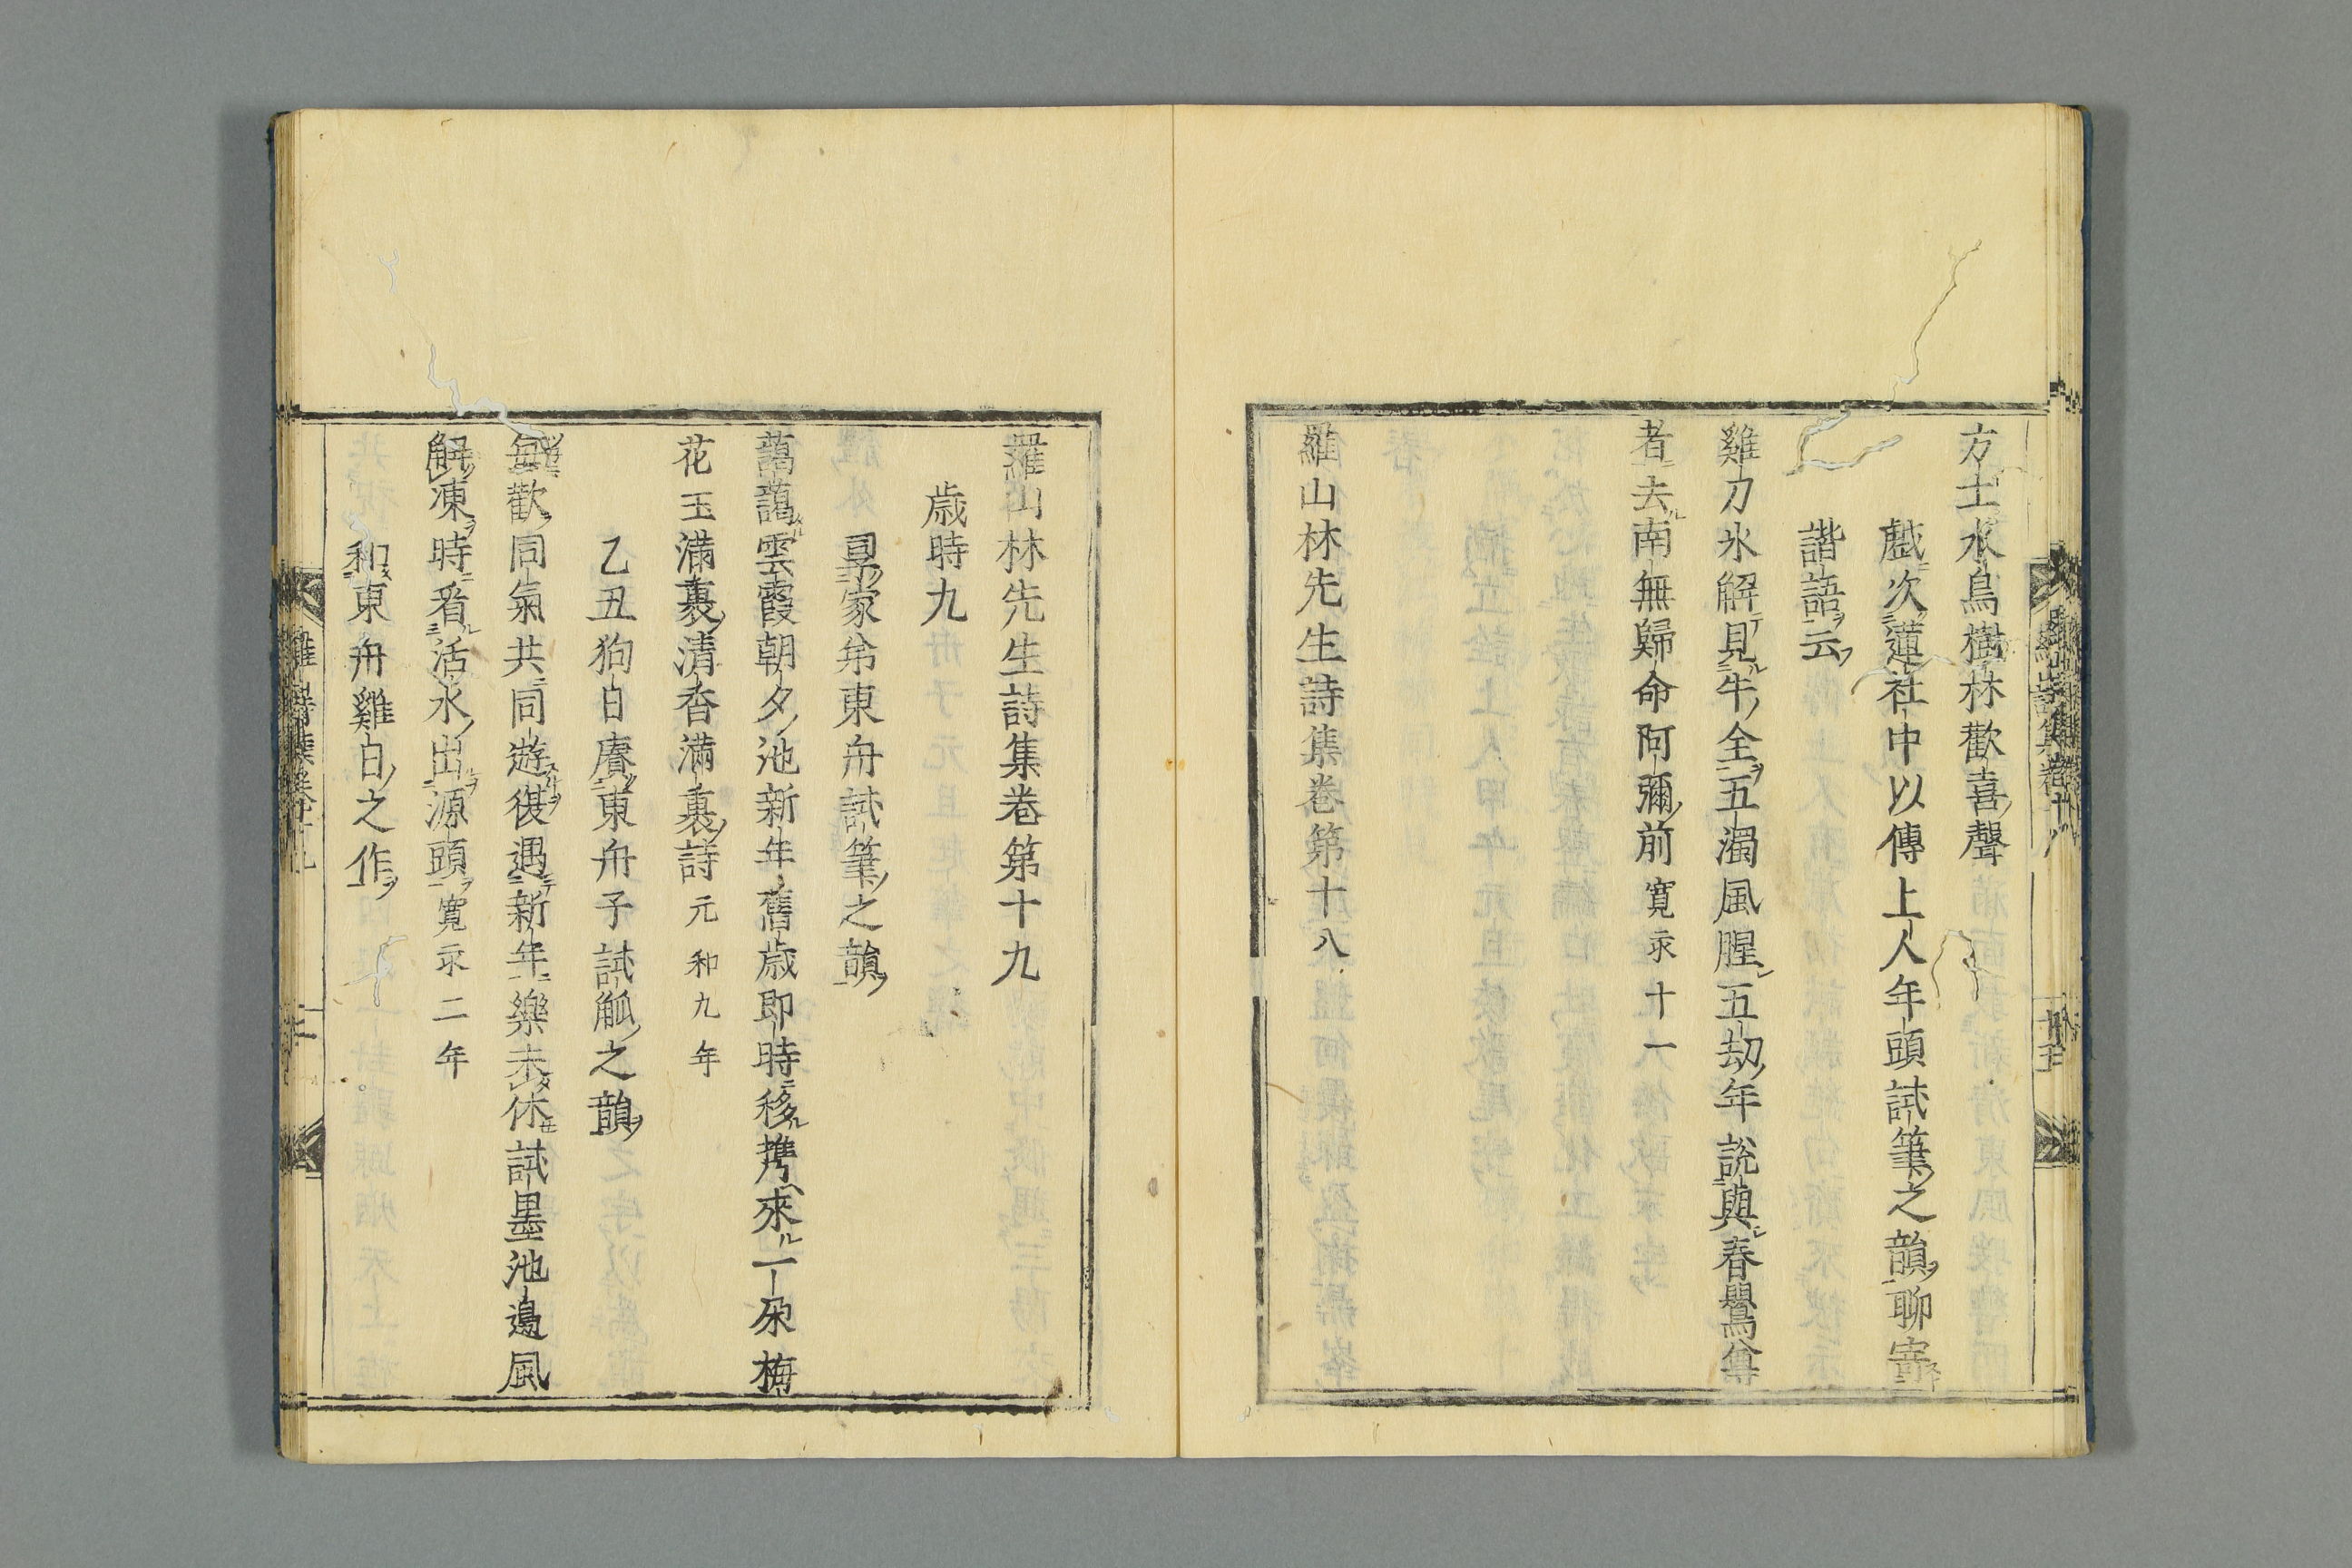 方士水鳥樹林歡喜聲
戲次蓮社中以傳上人年頭試筆之韻聊寄
諧語云
雞刀氷解見牛全五濁風腥五劫年說與春鸎尊
者去南無歸命阿彌前寛永十一
羅山林先生詩集卷第十八
羅山林先生詩集卷第十九
歳時九
家弟東舟試筆之韻
藹藹雲霞朝夕池新年舊歳即時移攜來一朶梅
花玉滿裏清香滿裏詩元和九年
乙丑狗日賡東舟子試觚之韻
每歡同氣共同遊復遇新年樂未休試墨池邊風
解凍時看活水出源頭寛永二年
和東舟雞日之作